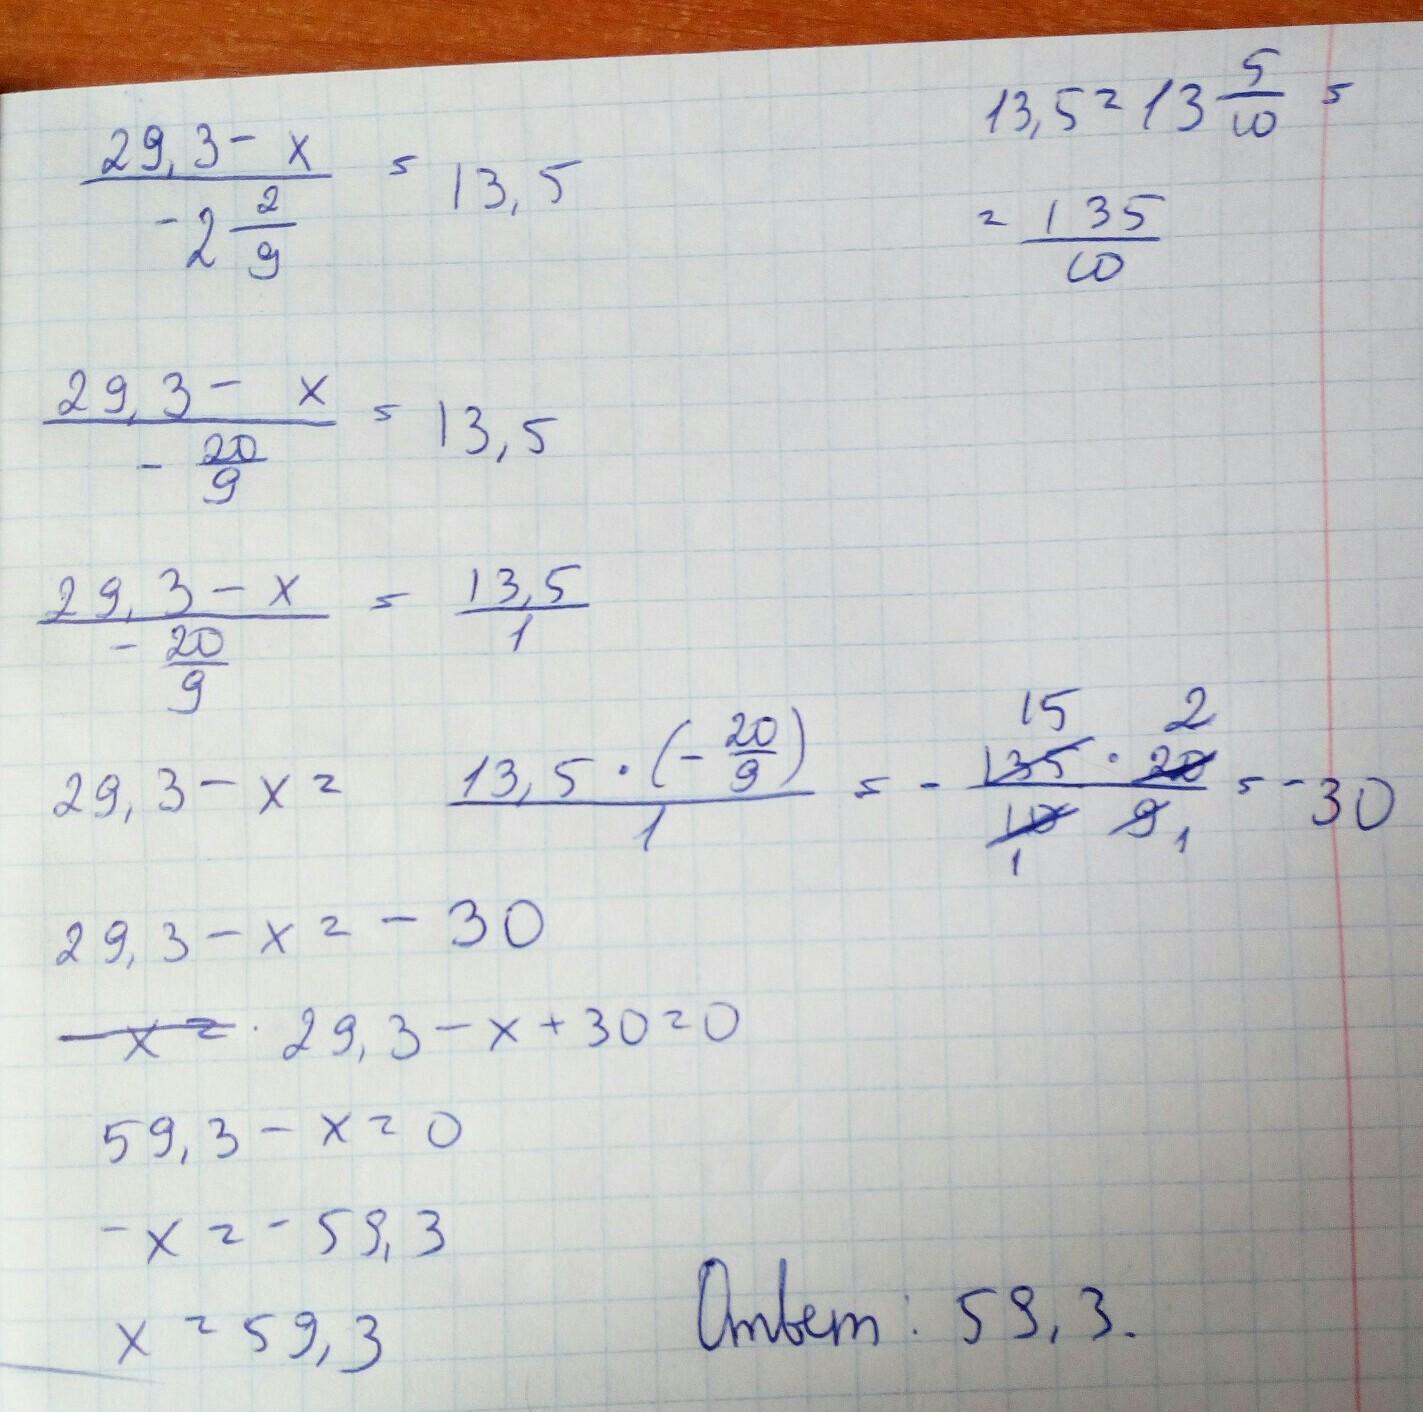 (29,3 - x)/(-2 2/9) = 13,5
13,5 = 13 5/10 =
= 135/10
(29,3 - x)/(- 20/9) = 13,5
(29,3 - x)/(- 20/9) = 13,5/1
29,3 - x = (13,5 · (- 20/9))/1 = - (135 · 20)/(10 9) = -30
15 2
1 1
29,3 - x = - 30
- x = 29,3 - x + 30 = 0
59,3 - x = 0
- x = - 59,3
x = 59,3
Ответ: 59,3.